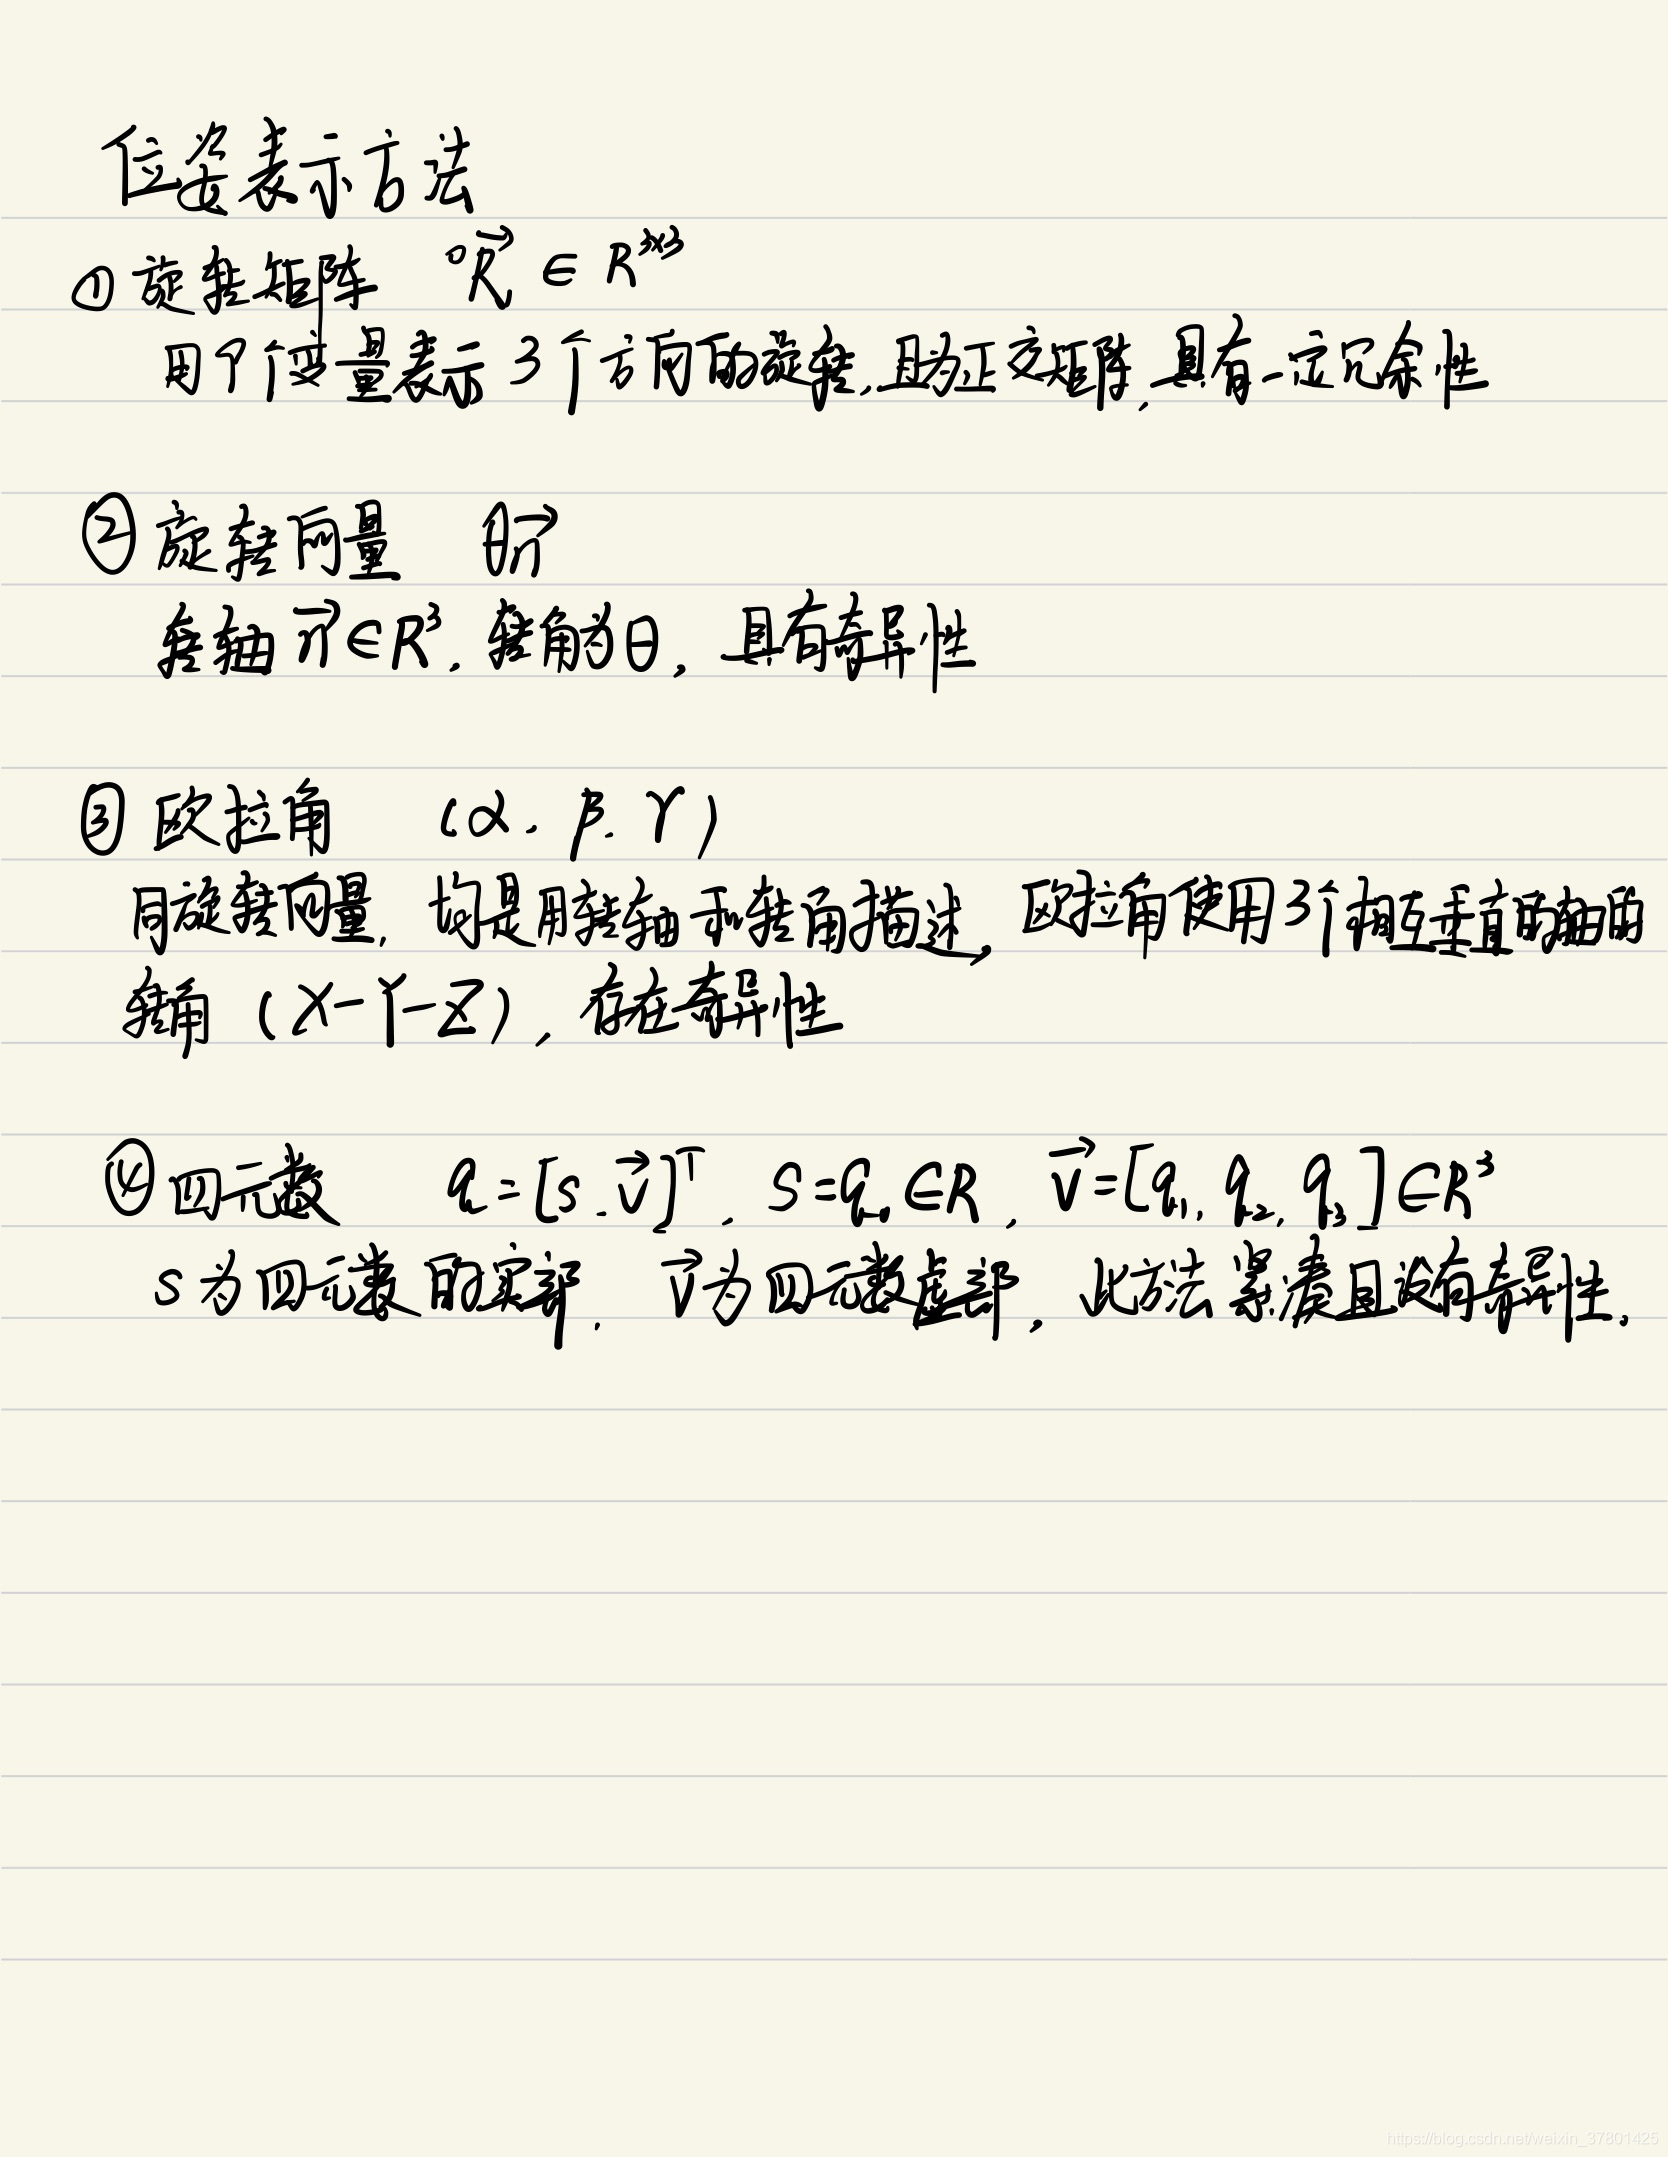 位姿表示方法
① 旋转矩阵 ⁰R⃗ ∈ R³ˣ³
用9个变量表示3个方向的旋转,且为正交矩阵,具有一定冗余性
② 旋转向量 θn⃗
转轴 n⃗∈R³, 转角为θ, 具有奇异性
③ 欧拉角 (α, β, γ)
同旋转向量, 均是用转轴和转角描述, 欧拉角使用3个相互垂直的轴的
转角 (X-Y-Z), 存在奇异性
④ 四元数 q=[s, v⃗]ᵀ, s=q₀∈R, v⃗=[q₁, q₂, q₃]∈R³
s为四元数的实部, v⃗为四元数虚部, 此方法紧凑且没有奇异性.
https://blog.csdn.net/weixin_37801425